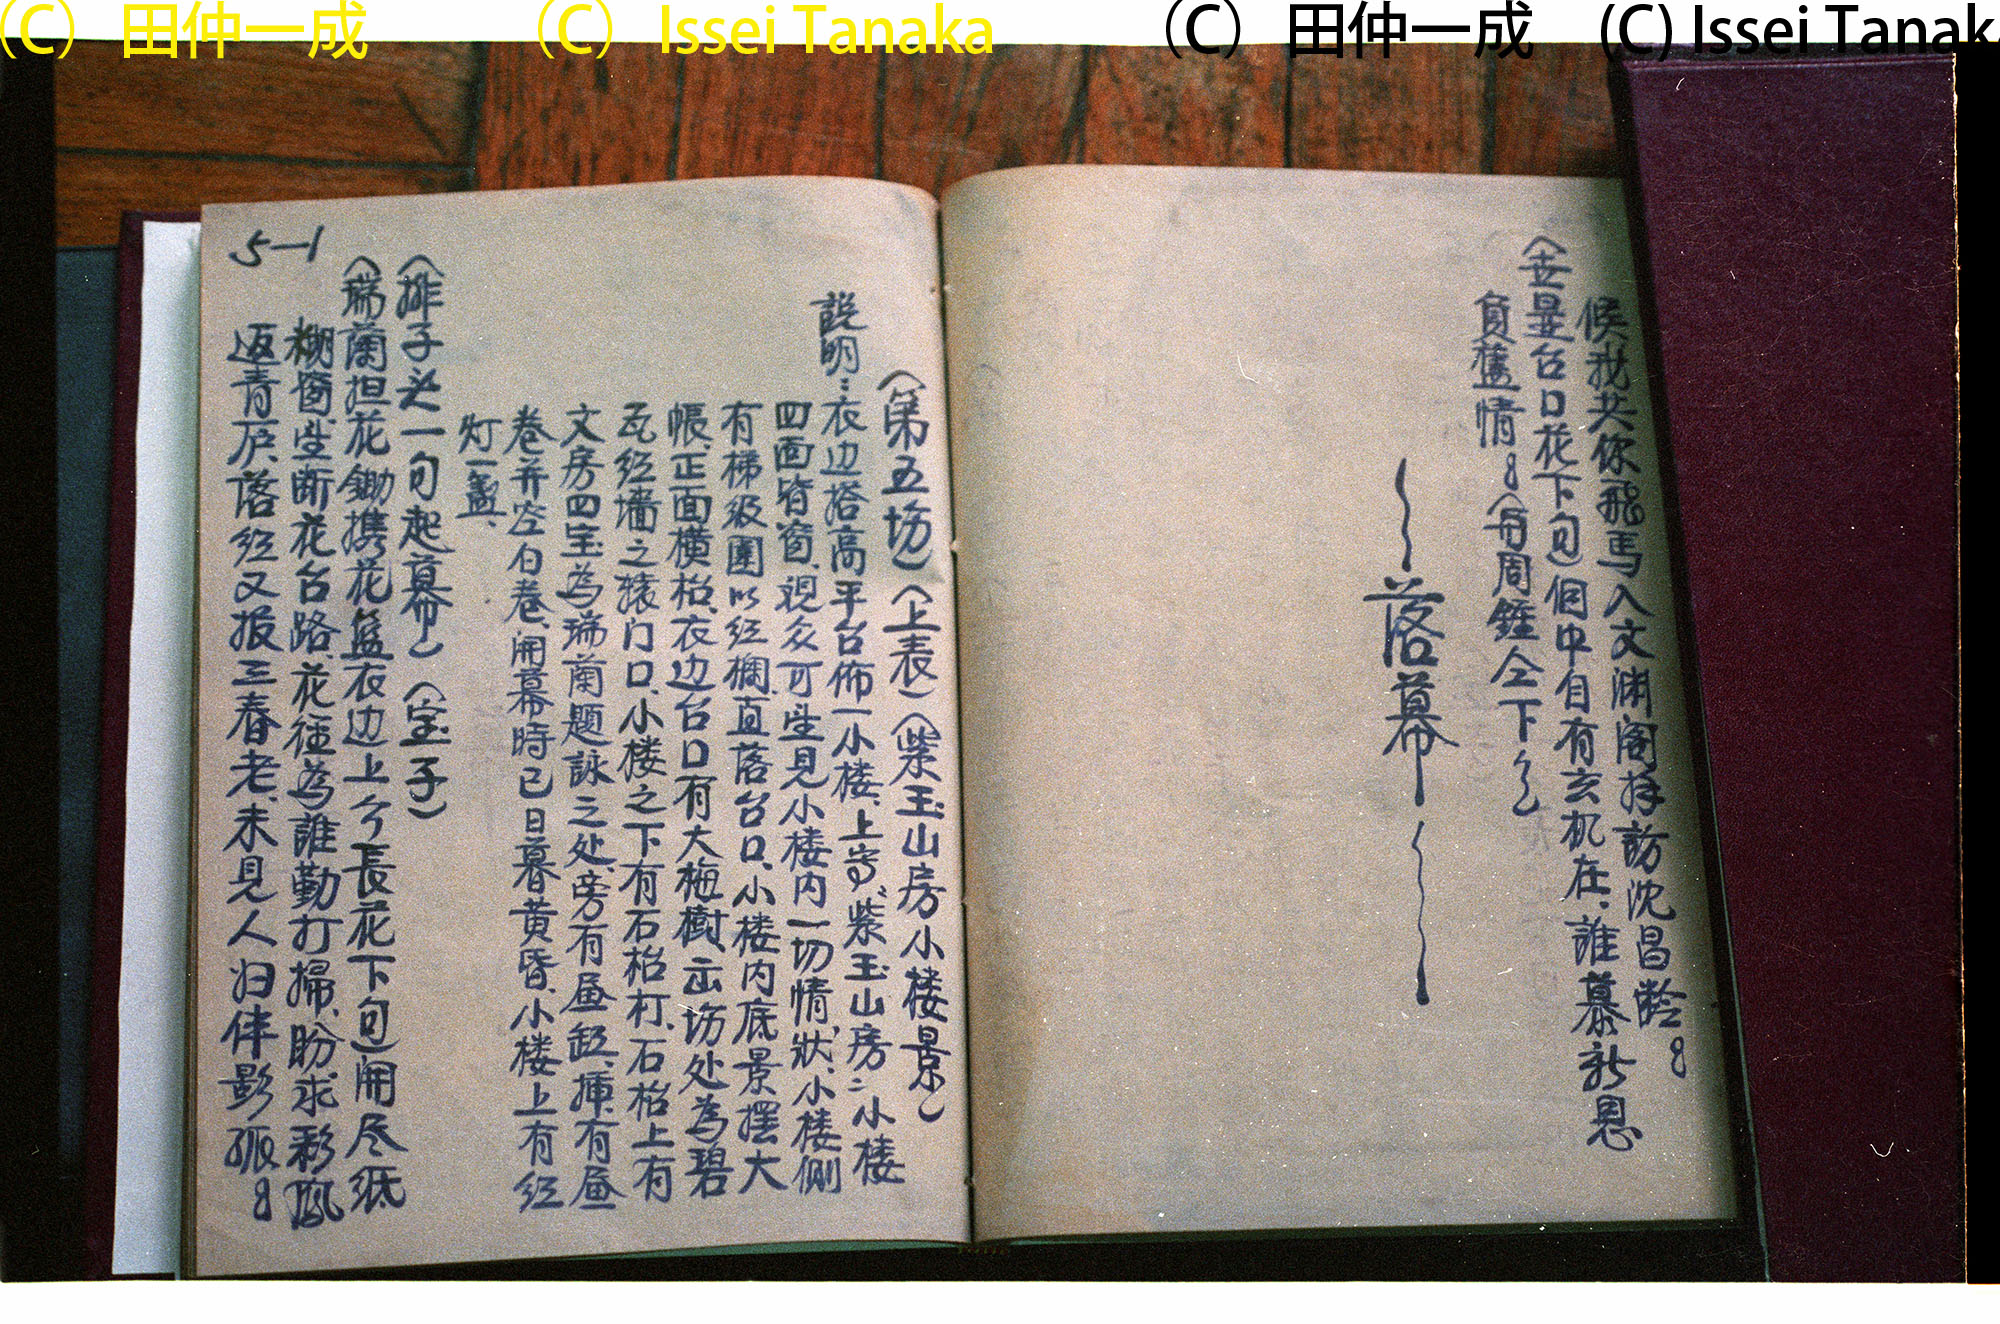 （C）田仲一成　（C）Issei Tanaka　（C）田仲一成　(C) Issei Tanak
候我共你飛馬入文渊阁拜訪沈昌齡
台口花下句）個中自有玄机在、誰慕新恩
負舊情（布周鍾仝下
落幕
（第五場）（上表）（紫玉山房小楼景）
説明：衣边搭高平台佈一小楼、上寫〝紫玉山房〞小楼
四面皆窗、观众可坐見小楼内一切情狀、小楼側
有梯级圍以红欄、直落台口、小楼内底景摆大
帳、正面横枱、衣边台口有大梅樹、出場处為碧
瓦红墙之辕门口、小楼之下有石枱杌、石枱上有
文房四宝為瑞蘭題詠之处、旁有画缸、插有画
卷并空白卷、開幕時已日暮黄昏、小楼上有红
灯一盞、
5—1
（排子头一句起幕）（宝子）
（瑞蘭担花鋤携花篮衣边上介長花下句）開尽紙
糊窗、坐断花台路、花径為誰勤打掃、盼求彩鳳
返青庐、落红又报三春老、未見人归伴影孤